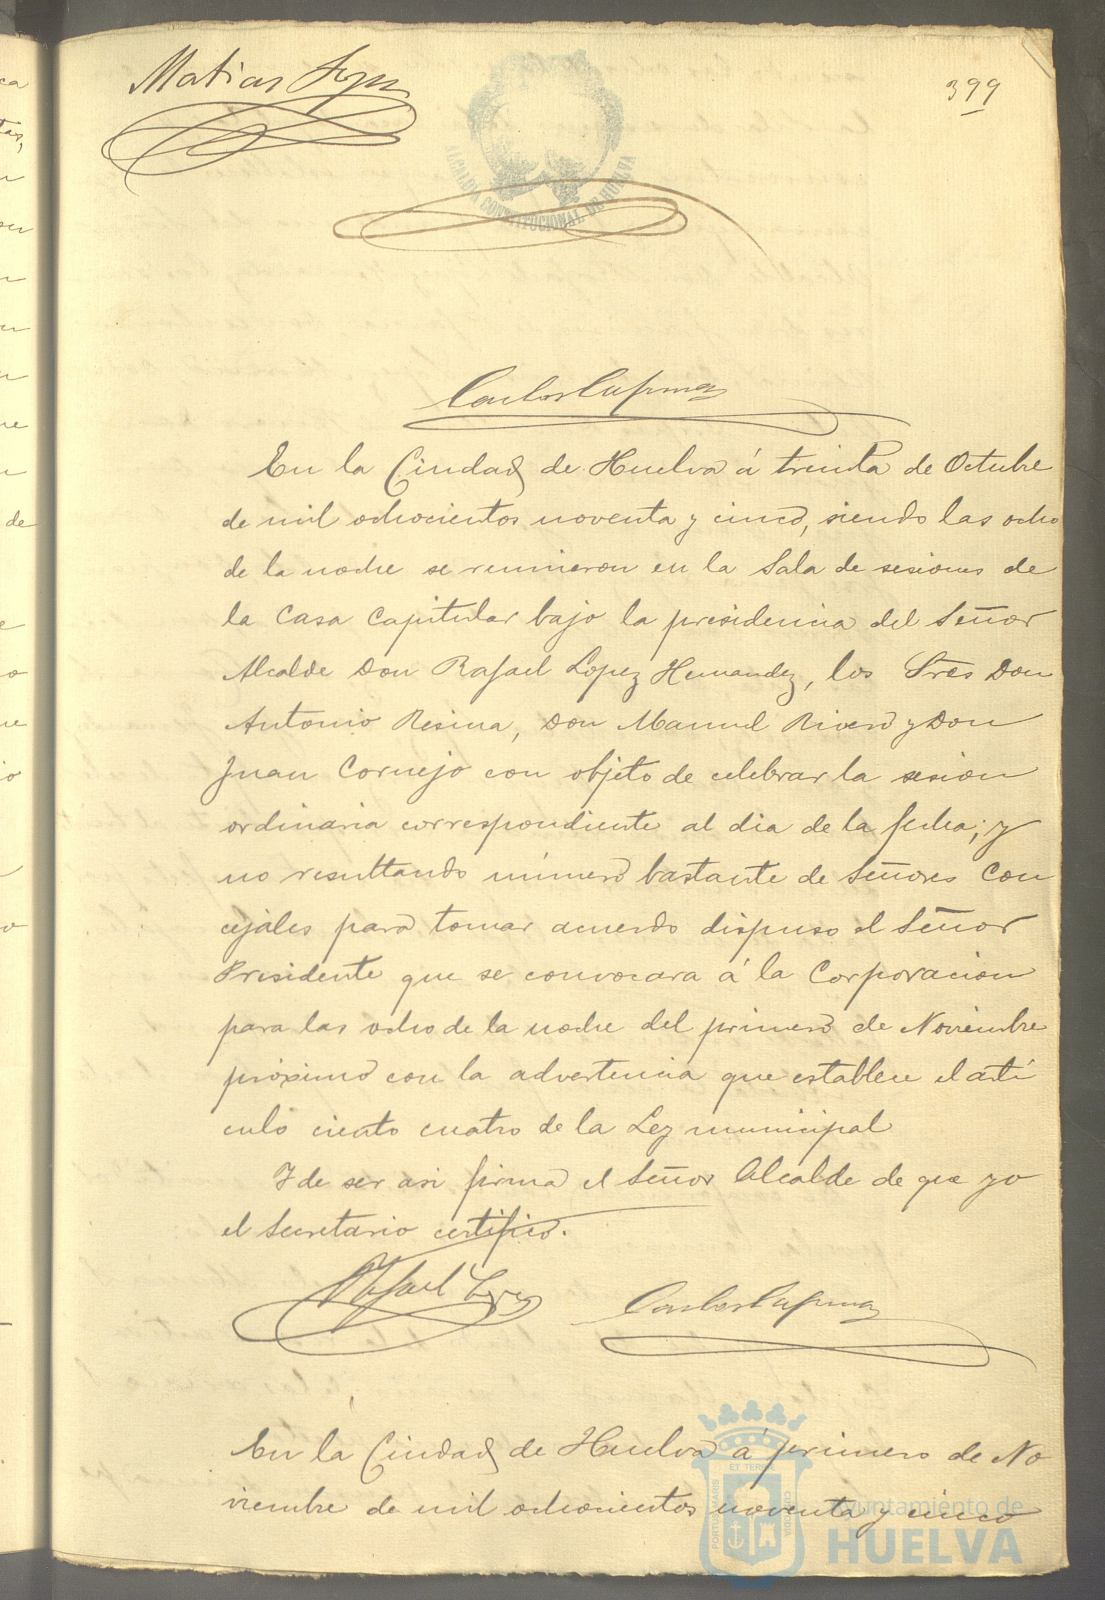 Matias
399
ALCALDIA CONSTITUCIONAL DE HUELVA
Carlos
En la Ciudad de Huelva á treinta de Octubre
de mil ochocientos noventa y cinco, siendo las ocho
de la noche se reunieron en la Sala de sesiones de
la Casa Capitular bajo la presidencia del Señor
Alcalde Don Rafael Lopez Hernandez, los Sres Don
Antonio Resina, Don Manuel Rivero y Don
Juan Cornejo con objeto de celebrar la sesion
ordinaria correspondiente al dia de la fecha; y
no resultando número bastante de Señores Con
cejales para tomar acuerdo dispuso el Señor
Presidente que se convocara á la Corporacion
para las ocho de la noche del primero de Noviembre
próximo con la advertencia que establece el arti
culo ciento cuatro de la Ley municipal
Y de ser asi firma el Señor Alcalde de que yo
el Secretario certifico.
Rafael Lopez Carlos
En la Ciudad de Huelva á primero de No
viembre de mil ochocientos noventa y cinco
PORTUS MARIS ET TERRE CUSTODIA
Ayuntamiento de
HUELVA